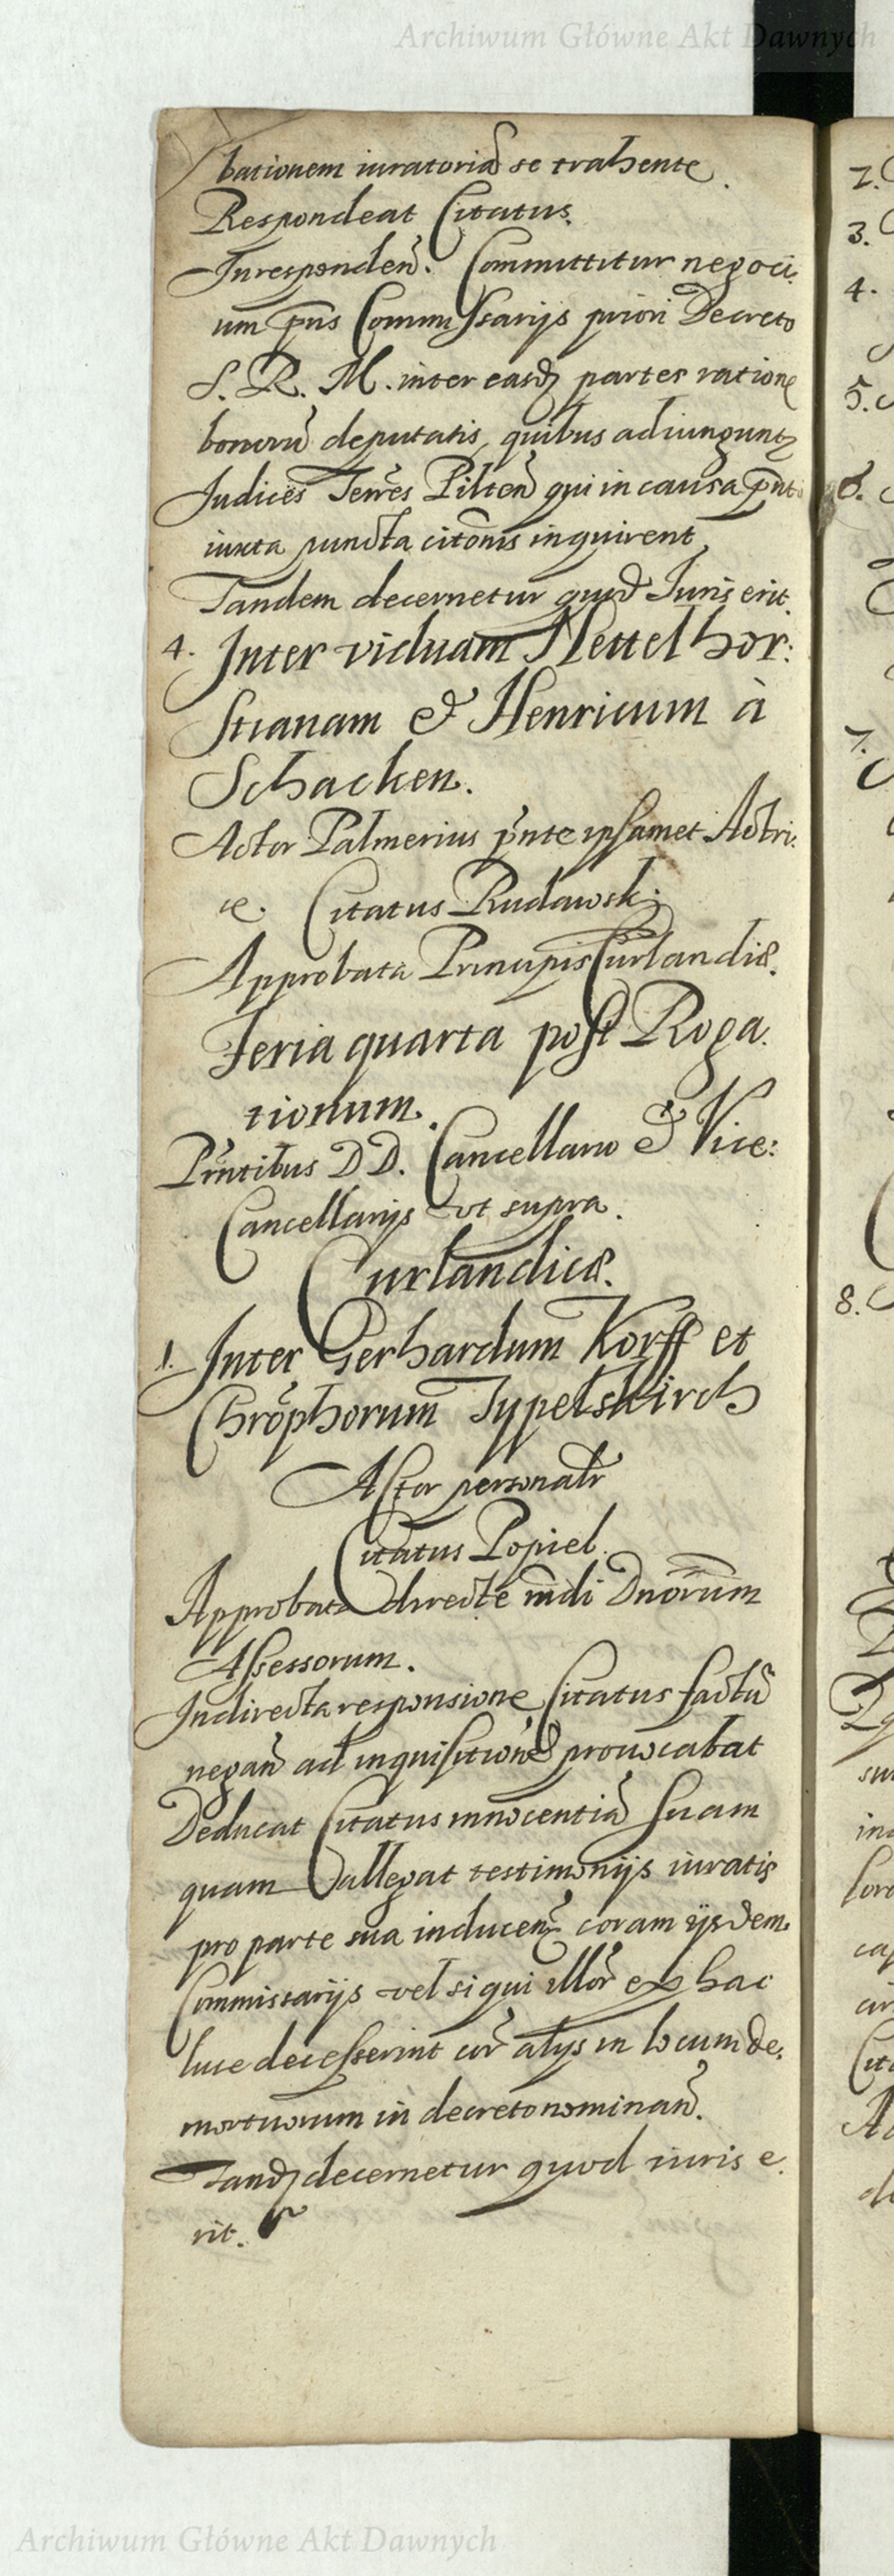 Archiwum Główne Akt Dawnych
bationem iuratoriã se trahente.
Respondeat Citatus.
In responden̄. Committitur negoci:
um p̄ns Commissarijs priori Decreto
S. R. M. inter easdꝫ partes ratione
bonorũ deputatis, quibus adiungunt̃
Judices Terr̃es Pilten̄ qui in causa p̄nti
iuxta puncta cit̃onis inquirent
Tandem decernetur quid Juris erit.
4. Inter viduam Nettelhor:
stianam & Henricum à
Schacken.
Actor Palmerius p̄nte ipsamet Actri:
ce. Citatus Rudawski
Approbata Principis Curlandiæ.
Feria quarta post Roga:
tionum.
Pñtibus D D. Cancellario & Vice:
Cancellarijs ut supra.
Curlandicæ.
1. Inter Gerhardum Korff et
Chrõphorum Typelskirch
Actor personalr̃
Citatus Popiel.
Approbata directe m̃di Dnõrum
Assessorum.
In directa responsione Citatus factũ
negan̄ ad inquisitionẽ prouocabat
Deducat Citatus innocentiã suam
quam allegat testimonijs iuratis
pro parte sua inducen̄ coram ijsdem
Commissarijs vel si qui illor̃ ex hac
luce decesserint cor̃ alijs in locum de:
mortuorum in decreto nominan̄.
Tandꝫ decernetur quod iuris e:
rit.
2.
3.
4.
5.
6.
7.
8.
Archiwum Główne Akt Dawnych